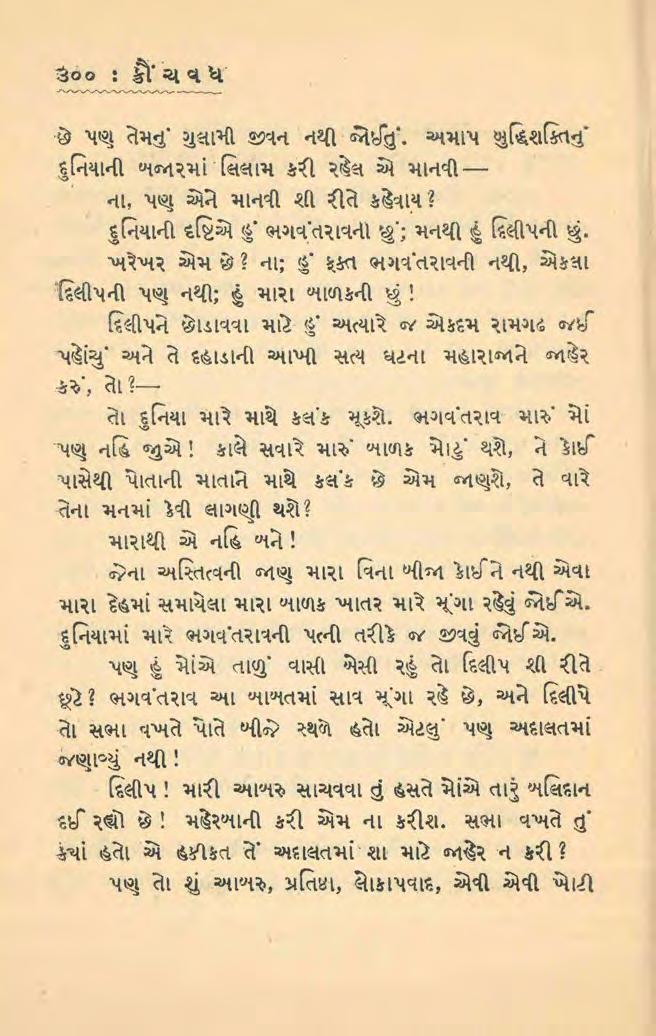 ૩૦૦ : ક્રૌંચવધ
છે પણ તેમનું ગુલામી જીવન નથી જોઈતું. અમાપ બુદ્ધિશક્તિનું
દુનિયાની બજારમાં લિલામ કરી રહેલ એ માનવી—
ના, પણ એને માનવી શી રીતે કહેવાય?
દુનિયાની દૃષ્ટિએ હું ભગવંતરાવની છું; મનથી હું દિલીપની છું.
ખરેખર એમ છે? ના; હું ફક્ત ભગવંતરાવની નથી, એકલા
દિલીપની પણ નથી; હું મારા બાળકની છું!
દિલીપને છોડાવવા માટે હું અત્યારે જ એકદમ રામગઢ જઈ
પહોંચું અને તે દહાડાની આખી સત્ય ઘટના મહારાજાને જાહેર
કરું, તો?—
તો દુનિયા મારે માથે કલંક મૂકશે. ભગવંતરાવ મારું મોં
પણ નહિ જુએ! કાલે સવારે મારું બાળક મોટું થશે, ને કોઈ
પાસેથી પોતાની માતાને માથે કલંક છે એમ જાણશે, તે વારે
તેના મનમાં કેવી લાગણી થશે?
મારાથી એ નહિ બને!
જેના અસ્તિત્વની જાણ મારા વિના બીજા કોઈને નથી એવા
મારા દેહમાં સમાયેલા મારા બાળક ખાતર મારે મૂંગા રહેવું જોઈએ.
દુનિયામાં મારે ભગવંતરાવની પત્ની તરીકે જ જીવવું જોઈએ.
પણ હું મોંએ તાળું વાસી બેસી રહું તો દિલીપ શી રીતે
છૂટે? ભગવંતરાવ આ બાબતમાં સાવ મૂંગા રહે છે, અને દિલીપે
તો સભા વખતે પોતે બીજે સ્થળે હતો એટલું પણ અદાલતમાં
જણાવ્યું નથી!
દિલીપ! મારી આબરુ સાચવવા તું હસતે મોંએ તારું બલિદાન
દઈ રહ્યો છે! મહેરબાની કરી એમ ના કરીશ. સભા વખતે તું
ક્યાં હતો એ હકીકત તેં અદાલતમાં શા માટે જાહેર ન કરી?
પણ તો શું આબરુ, પ્રતિષ્ઠા, લોકાપવાદ, એવી એવી ખોટી